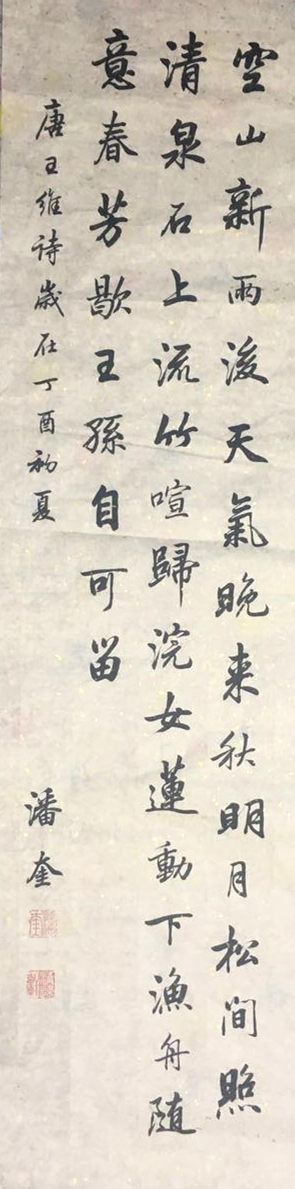 空山新雨後天氣晚来秋明月松間照
清泉石上流竹喧歸浣女蓮動下漁舟随
意春芳歇王孫自可留
唐王維詩歲在丁酉初夏
潘奎